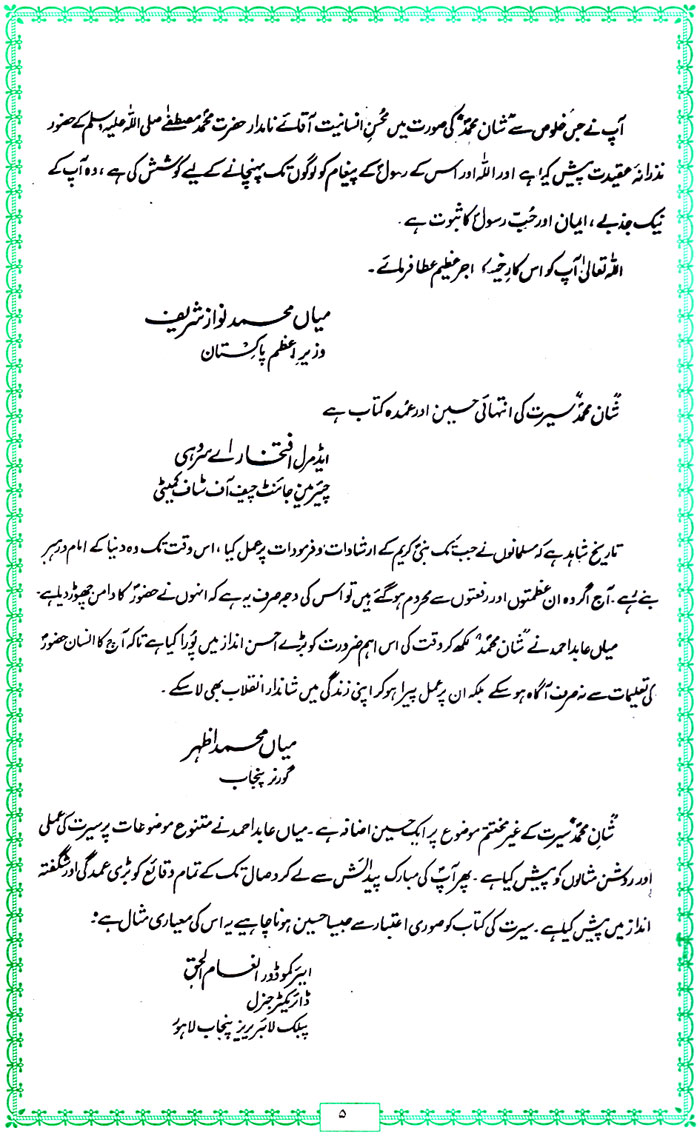 آپ نے جس خلوص سے "شان محمدؐ" کی صورت میں محسنِ انسانیت آقائے نامدار حضرت محمد مصطفٰے صلی اللہ علیہ وسلم کے حضور
نذرانۂ عقیدت پیش کیا ہے اور اللہ اور اس کے رسولؐ کے پیغام کو لوگوں تک پہنچانے کے لیے کوشش کی ہے، وہ آپ کے
نیک جذبے، ایمان اور حُبِّ رسولؐ کا ثبوت ہے۔
اللہ تعالیٰ آپ کو اس کارِ خیر کا اجرِ عظیم عطا فرمائے۔
میاں محمد نواز شریف
وزیرِ اعظم پاکستان
"شان محمدؐ" سیرت کی انتہائی حسین اور عمدہ کتاب ہے
ایڈمرل افتخار اے سروہی
چیئرمین جائنٹ چیف آف سٹاف کمیٹی
تاریخ شاہد ہے کہ مسلمانوں نے جب تک نبی کریمؐ کے ارشادات و فرمودات پر عمل کیا، اس وقت تک وہ دنیا کے امام و رہبر
بنے رہے۔ آج اگر وہ ان عظمتوں اور رفعتوں سے محروم ہو گئے ہیں تو اس کی وجہ صرف یہ ہے کہ انہوں نے حضورؐ کا دامن چھوڑ دیا ہے۔
میاں عابد احمد نے "شان محمدؐ" لکھ کر وقت کی اس اہم ضرورت کو بڑے احسن انداز میں پُورا کیا ہے تاکہ آج کا انسان حضورؐ
کی تعلیمات سے نہ صرف آگاہ ہو سکے بلکہ ان پر عمل پیرا ہو کر اپنی زندگی میں شاندار انقلاب بھی لا سکے۔
میاں محمد اظہر
گورنر پنجاب
"شانِ محمدؐ" سیرت کے غیر مختتم موضوع پر ایک حسین اضافہ ہے۔ میاں عابد احمد نے متنوع موضوعات پر سیرت کی عملی
اور روشن مثالوں کو پیش کیا ہے۔ پھر آپؐ کی مبارک پیدائش سے لے کر وصال تک کے تمام وقائع کو بڑی عمدگی اور شگفتہ
انداز میں پیش کیا ہے۔ سیرت کی کتاب کو صوری اعتبار سے جیسا حسین ہونا چاہیے یہ اس کی معیاری مثال ہے۔
ایئر کموڈور انعام الحق
ڈائریکٹر جنرل
پبلک لائبریریز پنجاب لاہور
۵